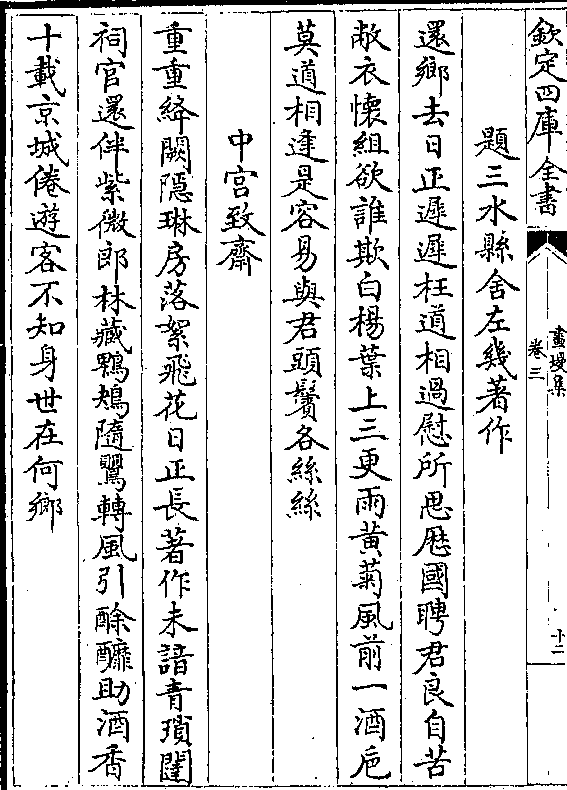 欽定四庫全書
畫墁集
卷三
十二
題三水縣舍左幾著作
還鄉去日正遲遲枉道相過慰所思歷國聘君良自苦
敝衣懷組欲誰欺白楊葉上三更雨黄菊風前一酒巵
莫道相逢是容易與君頭鬢各絲絲
中宫致齋
重重絳闕隱琳房落絮飛花日正長著作未諳青瑣闥
祠官還伴紫微郎林藏鸎鴂隨鸎轉風引酴醿助酒香
十載京城倦遊客不知身世在何鄉